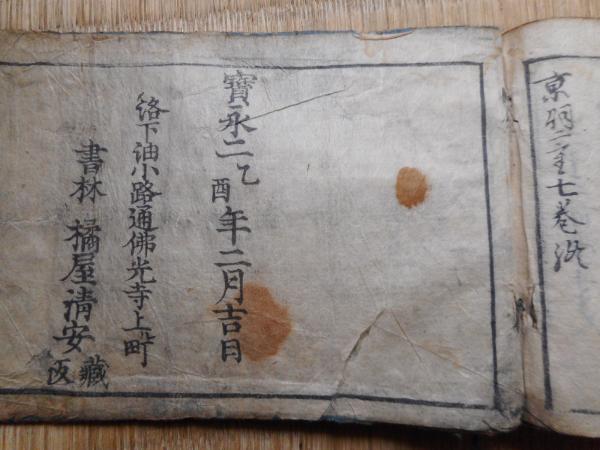 京羽二重七巻終
寳永二乙酉年二月吉日
洛下油小路通佛光寺上ル町
書林 橘屋清安
藏板